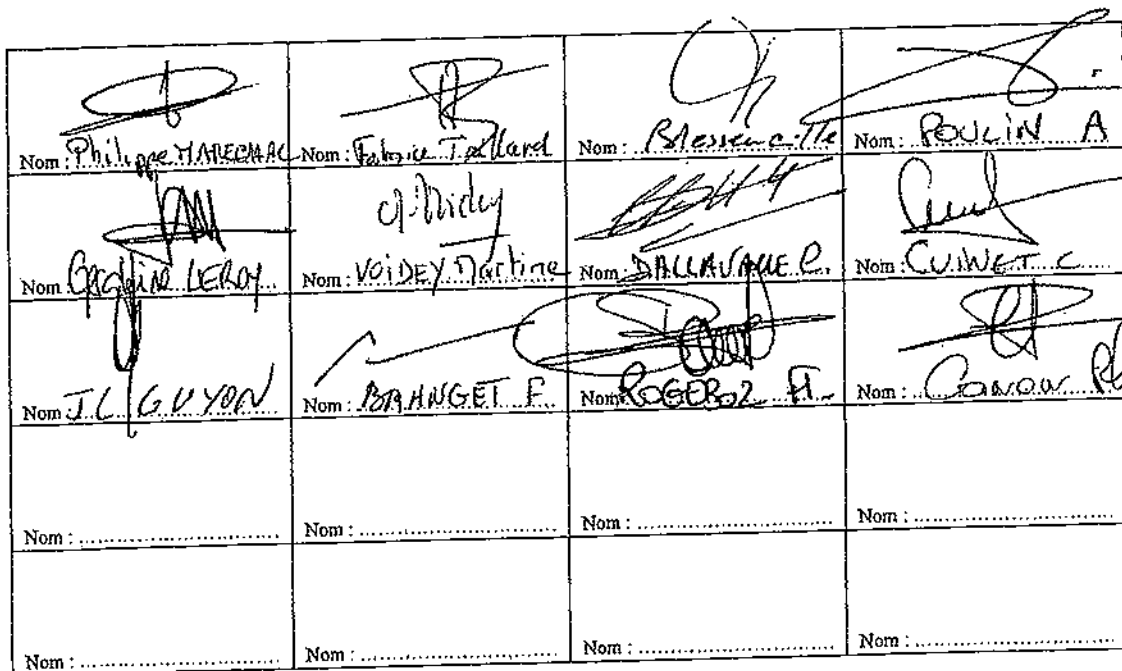 Nom : Philippe MARECHAL Nom : Fabrice Taillard Nom : Blessencille Nom : POULIN A
Nom : LEROY Nom : VOIDEY Martine Nom : DALLAVALLE C. Nom : CUINET C
Nom : JC GUYON Nom : BRANGET F. Nom : ROGEBOZ A. Nom :
Nom : .................... Nom : .................... Nom : .................... Nom : ....................
Nom : .................... Nom : .................... Nom : .................... Nom : ....................